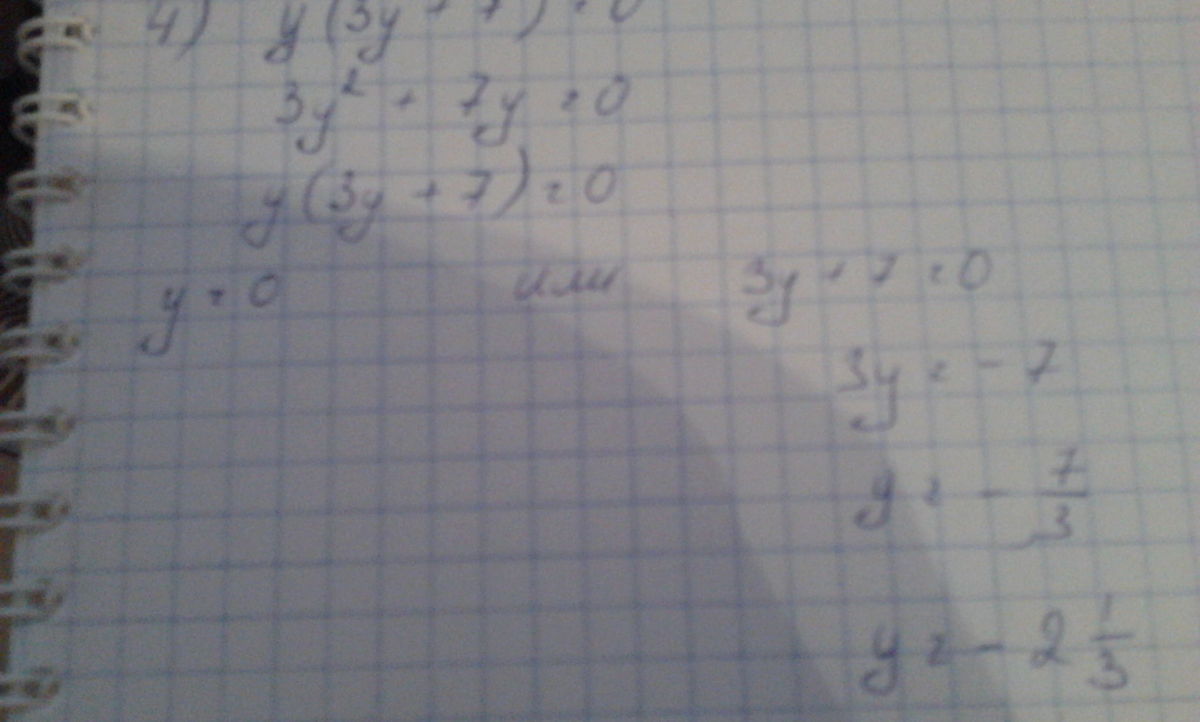 4) y(3y + 7) = 0
3y² + 7y = 0
y(3y + 7) = 0
y = 0 или 3y + 7 = 0
3y = - 7
y = - 7/3
y = - 2 1/3